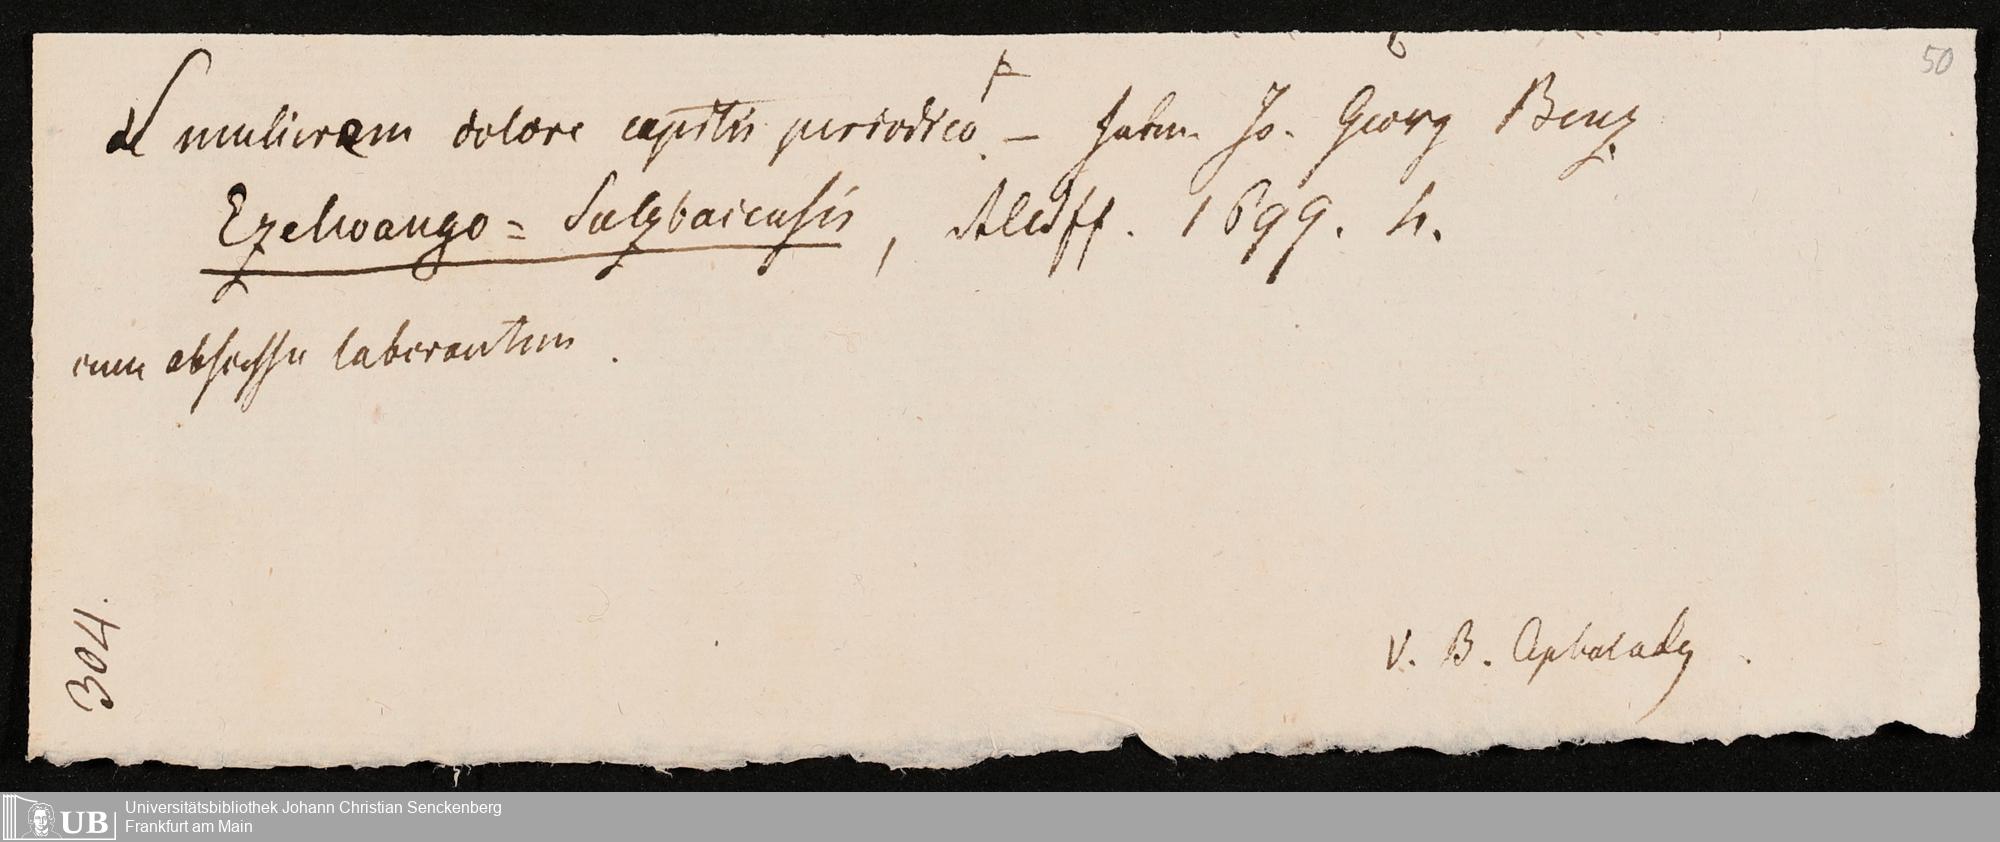 50
de mulierem dolore capitis periodico ⌈ — submi. Jo. Georg Benz
Ezelwango = Salzbacensis, Altdff. 1699. h.
cum abscessu laborantem.
304.
V. B.
Universitätsbibliothek Johann Christian Senckenberg
Frankfurt am Main
UB